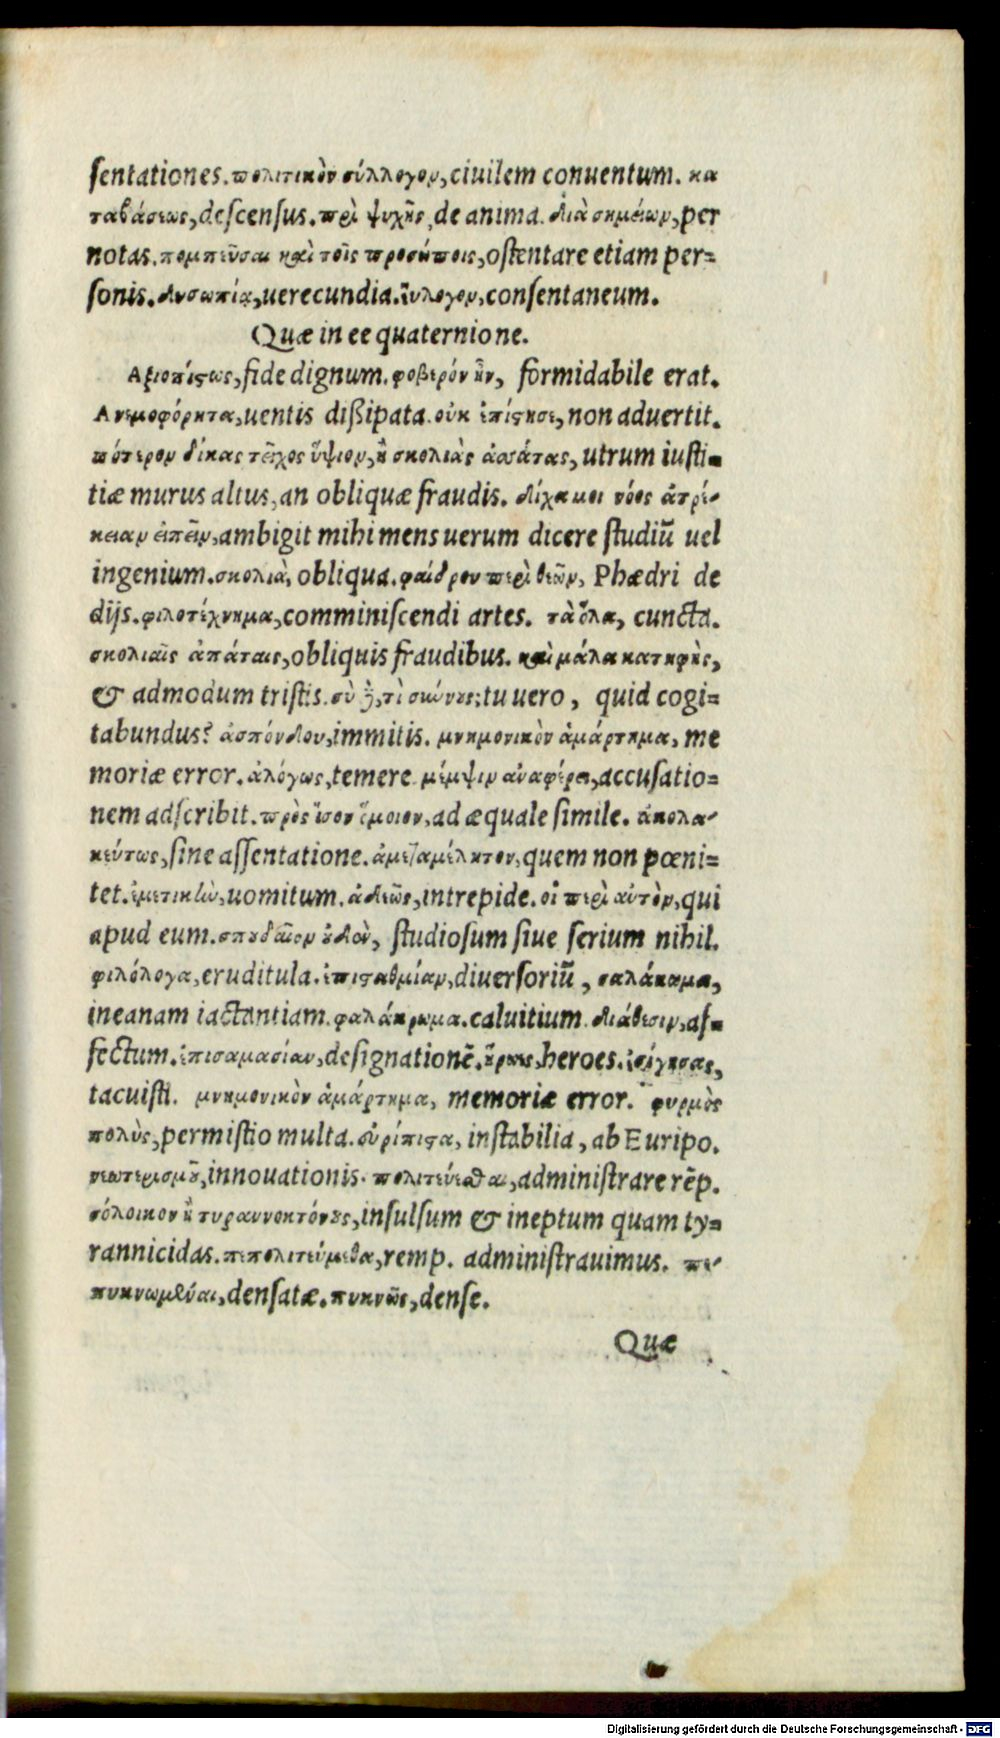 sentationes. πολιτικὸν σύλλογον, ciuilem conuentum. κα
ταβάσεως, descensus. περὶ ψυχῆς, de anima. διὰ σημείων, per
notas. πομπεῦσαι καὶ τοῖς προσώποις, ostentare etiam per=
sonis. δυσωπία, uerecundia. εὔλογον, consentaneum.
Quæ in ee quaternione.
Αξιοπίστως, fide dignum. φοβερόν ἦν, formidabile erat.
Ανεμοφόρητα, uentis dißipata. οὐκ ἐπίστησε, non aduertit.
πότερον δίκας τεῖχος ὕψιον, ἢ σκολιὰς ἀπάτας, utrum iusti=
tiæ murus altus, an obliquæ fraudis. δίχα μοι νόος ἀτρέ-
κειαν εἰπεῖν, ambigit mihi mens uerum dicere studiũ uel
ingenium. σκολιὰ, obliqua. φαίδρου περὶ θεῶν, Phædri de
dijs. φιλοτέχνημα, comminiscendi artes. τὰ ὅλα, cuncta.
σκολιαῖς ἀπάταις, obliquis fraudibus. καὶ μάλα κατηφὴς,
& admodum tristis. σὺ δὲ, τὶ σκώπτεις; tu uero, quid cogi=
tabundus? ἀσπόνδου, immitis. μνημονικὸν ἁμάρτημα, me
moriæ error. ἀλόγως, temere. μέμψιν αναφέρει, accusatio=
nem adscribit. πρὸς ἴσον ὅμοιον, ad æquale simile. ἀκολα-
κεύτως, sine assentatione. ἀμεταμέλητον, quem non pœni=
tet. ἐμετικὴν, uomitum. ἀδεῶς, intrepide. οἱ περὶ αὐτὸν, qui
apud eum. σπουδαῖον οὐδὲν, studiosum siue serium nihil.
φιλόλογα, eruditula. ἐπισταθμίαν, diuersoriũ, σαλάκωμα,
ineanam iactantiam. φαλάκρωμα. caluitium. διάθεσιν, af=
fectum. ἐπισημασίαν, designationẽ. ἥρωες, heroes. ἐσίγησας,
tacuisti. μνημονικὸν ἁμάρτημα, memoriæ error. φυρμὸς
πολὺς, permistio multa. εὐρίπιστα, instabilia, ab Euripo.
νεωτερισμοῦ, innouationis. πολιτεύεσθαι, administrare rẽp.
σόλοικον ἢ τυραννοκτόνους, insulsum & ineptum quam ty=
rannicidas. πεπολιτεύμεθα, remp. administrauimus. πε-
πυκνωμέναι, densatæ. πυκνῶς, dense.
Quæ
Digitalisierung gefördert durch die Deutsche Forschungsgemeinschaft - DFG